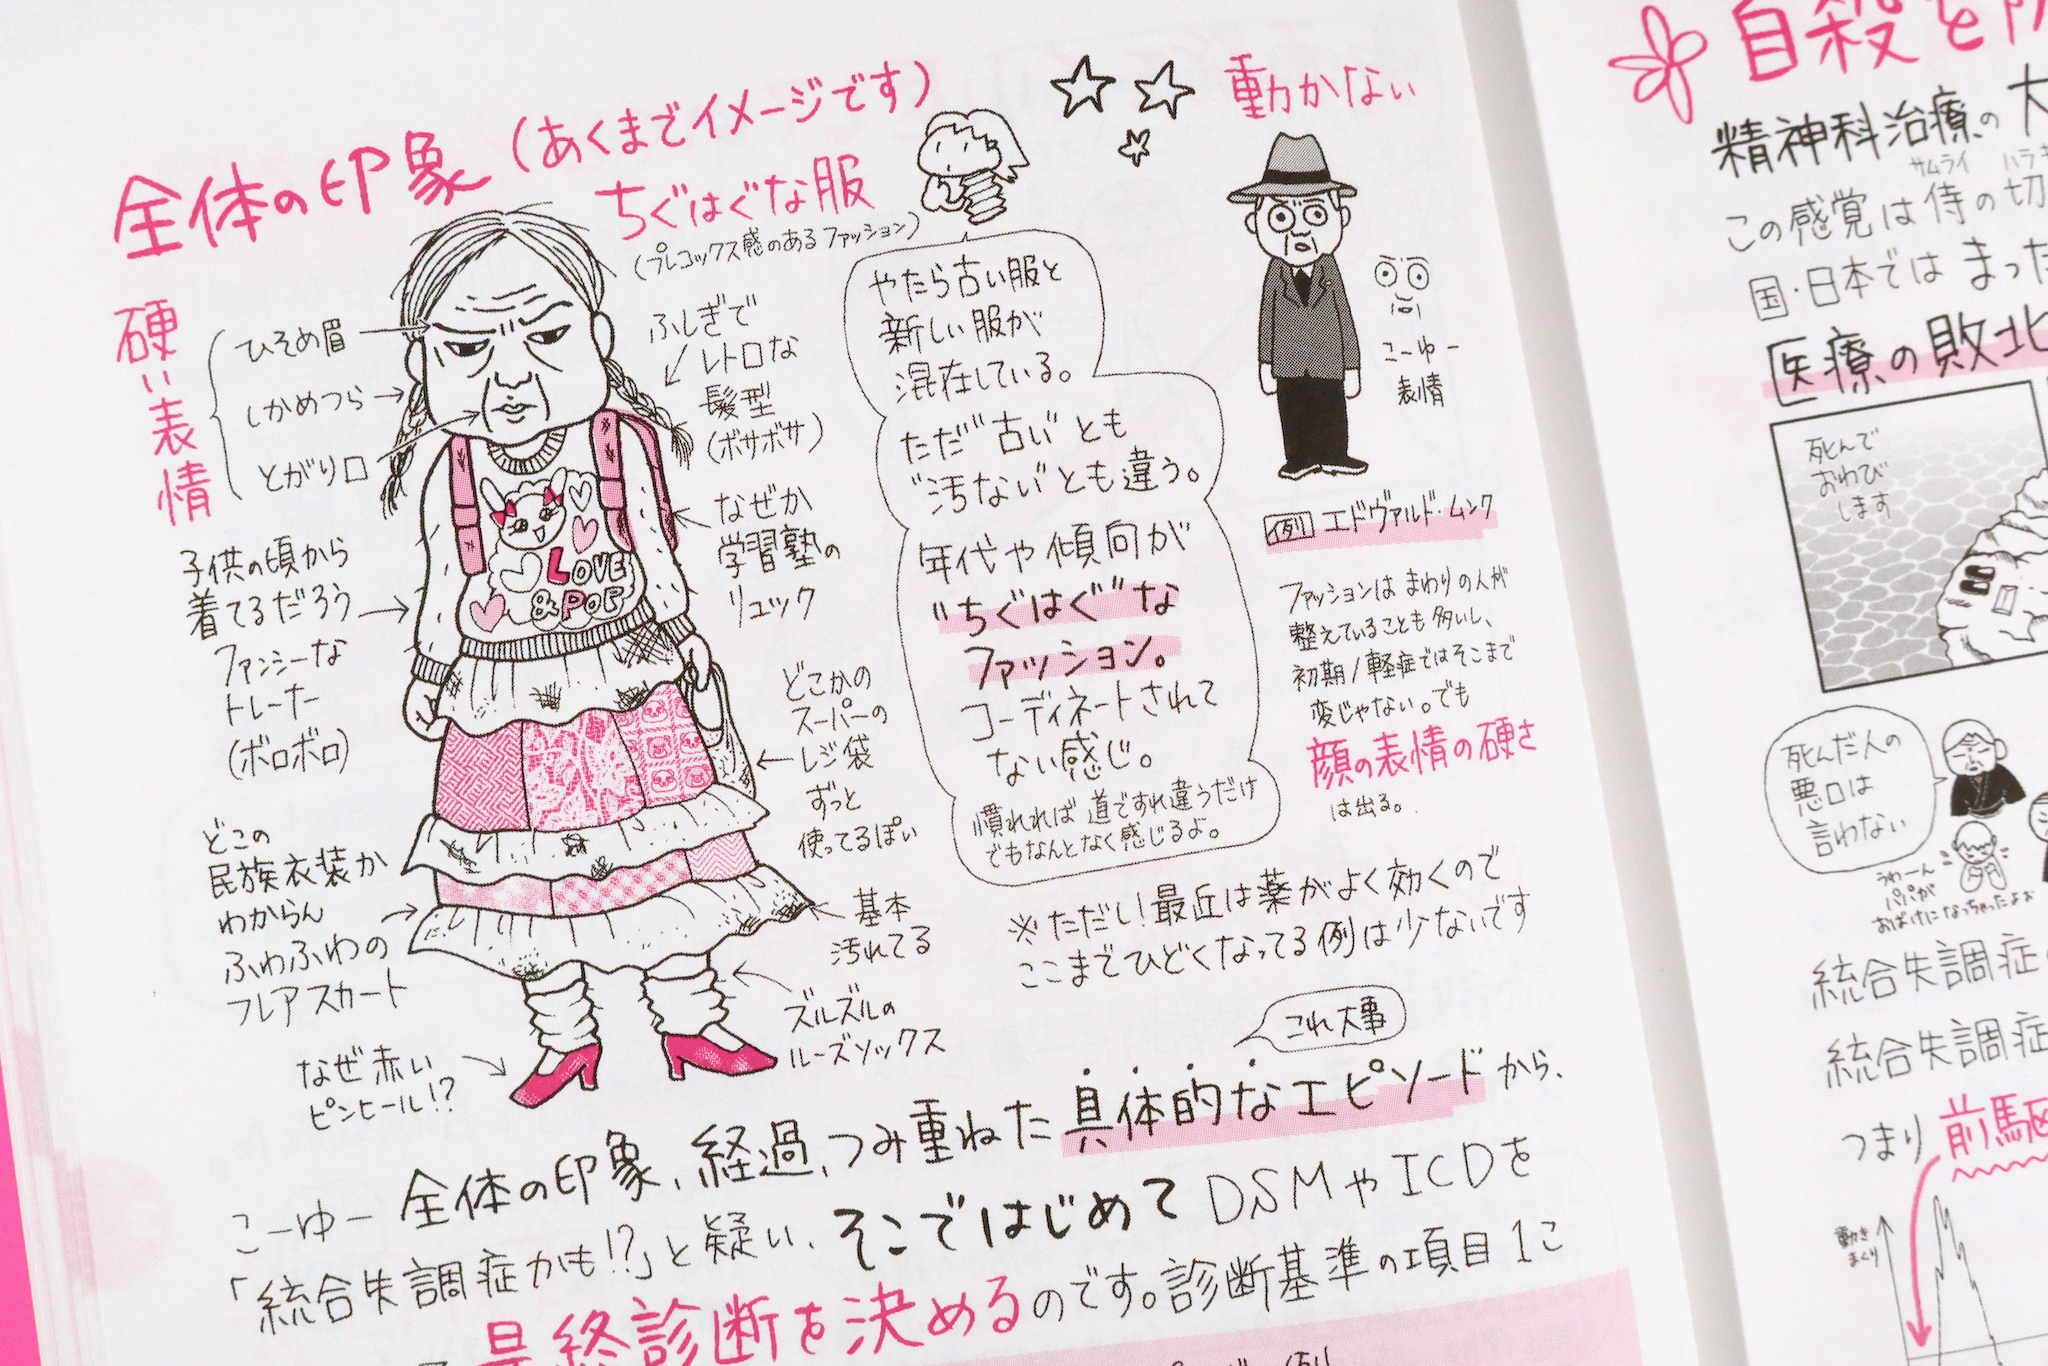 全体の印象(あくまでイメージです)
硬い表情
ひそめ眉
しかめつら
とがり口
子供の頃から
着てるだろう
ファンシーな
トレーナー
(ボロボロ)
どこの
民族衣装か
わからん
ふわふわの
フレアスカート
なぜ赤い
ピンヒール!?
LOVE
&POP
ちぐはぐな服
(プレコックス感のあるファッション)
ふしぎで
レトロな
髪型
(ボサボサ)
なぜか
学習塾の
リュック
どこかの
スーパーの
レジ袋
ずっと
使ってるぽい
基本
汚れてる
ズルズルの
ルーズソックス
やたら古い服と
新しい服が
混在している。
ただ“古い”とも
“汚ない”とも違う。
年代や傾向が
“ちぐはぐ”な
ファッション。
コーディネートされて
ない感じ。
慣れれば道ですれ違うだけ
でもなんとなく感じるよ。
動かない
こーゆー
表情
例 エドヴァルド・ムンク
ファッションはまわりの人が
整えていることも多いし、
初期/軽症ではそこまで
変じゃない。でも
顔の表情の硬さ
は出る。
※ただし!最近は薬がよく効くので
ここまでひどくなってる例は少ないです
これ大事
こーゆー全体の印象、経過、つみ重ねた具体的なエピソードから、
「統合失調症かも!?」と疑い、そこではじめてDSMやICDを
最終診断を決めるのです。診断基準の項目1こ
自殺を
精神科治療の大
サムライ ハラキ
この感覚は侍の切
国・日本ではまった
医療の敗北
死んで
おわび
します
死んだ人の
悪口は
言わない
うわーん
パパが
おばけになっちゃったよぉ
統合失調症
統合失調症
つまり前駆
動き
まくり